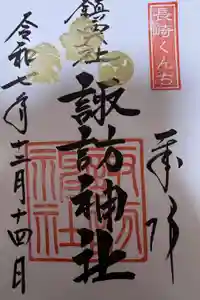 長崎くんち
奉拝
鎮西大社
諏訪神社
諏訪
神社
令和七年十二月十四日